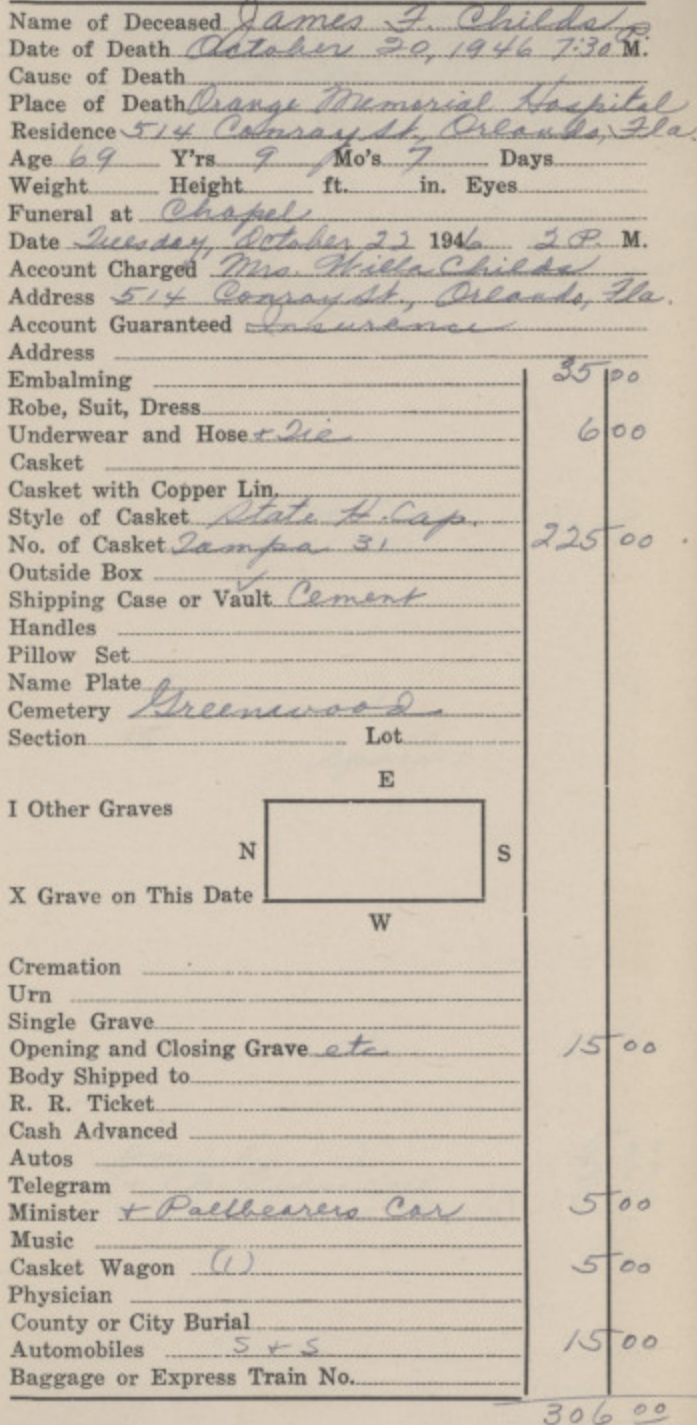 Name of Deceased James F. Childs
Date of Death October 20, 1946 7:30 P. M.
Cause of Death
Place of Death Orange Memorial Hospital
Residence 514 Conray St, Orlando, Fla.
Age 69 Y'rs 9 Mo's 7 Days
Weight Height ft. in. Eyes
Funeral at Chapel
Date Tuesday, October 22 1946 2 P. M.
Account Charged Mrs. Willa Childs
Address 514 Conray St., Orlando, Fla.
Account Guaranteed Insurance
Address
Embalming 35 00
Robe, Suit, Dress
Underwear and Hose + Tie 6 00
Casket
Casket with Copper Lin.
Style of Casket State H. Cap.
No. of Casket Tampa 31 225 00
Outside Box
Shipping Case or Vault Cement
Handles
Pillow Set
Name Plate
Cemetery Greenwood
Section Lot
E
I Other Graves
N S
X Grave on This Date
W
Cremation
Urn
Single Grave
Opening and Closing Grave etc 15 00
Body Shipped to
R. R. Ticket
Cash Advanced
Autos
Telegram
Minister + Pallbearers Car 5 00
Music
Casket Wagon (1) 5 00
Physician
County or City Burial
Automobiles S + S 15 00
Baggage or Express Train No.
306 00